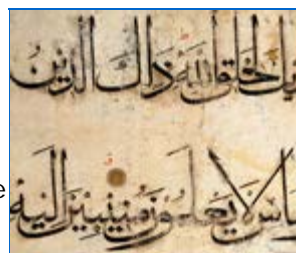 لخلق الله ذلك الدين
لا يعلمون منيبين اليه
e